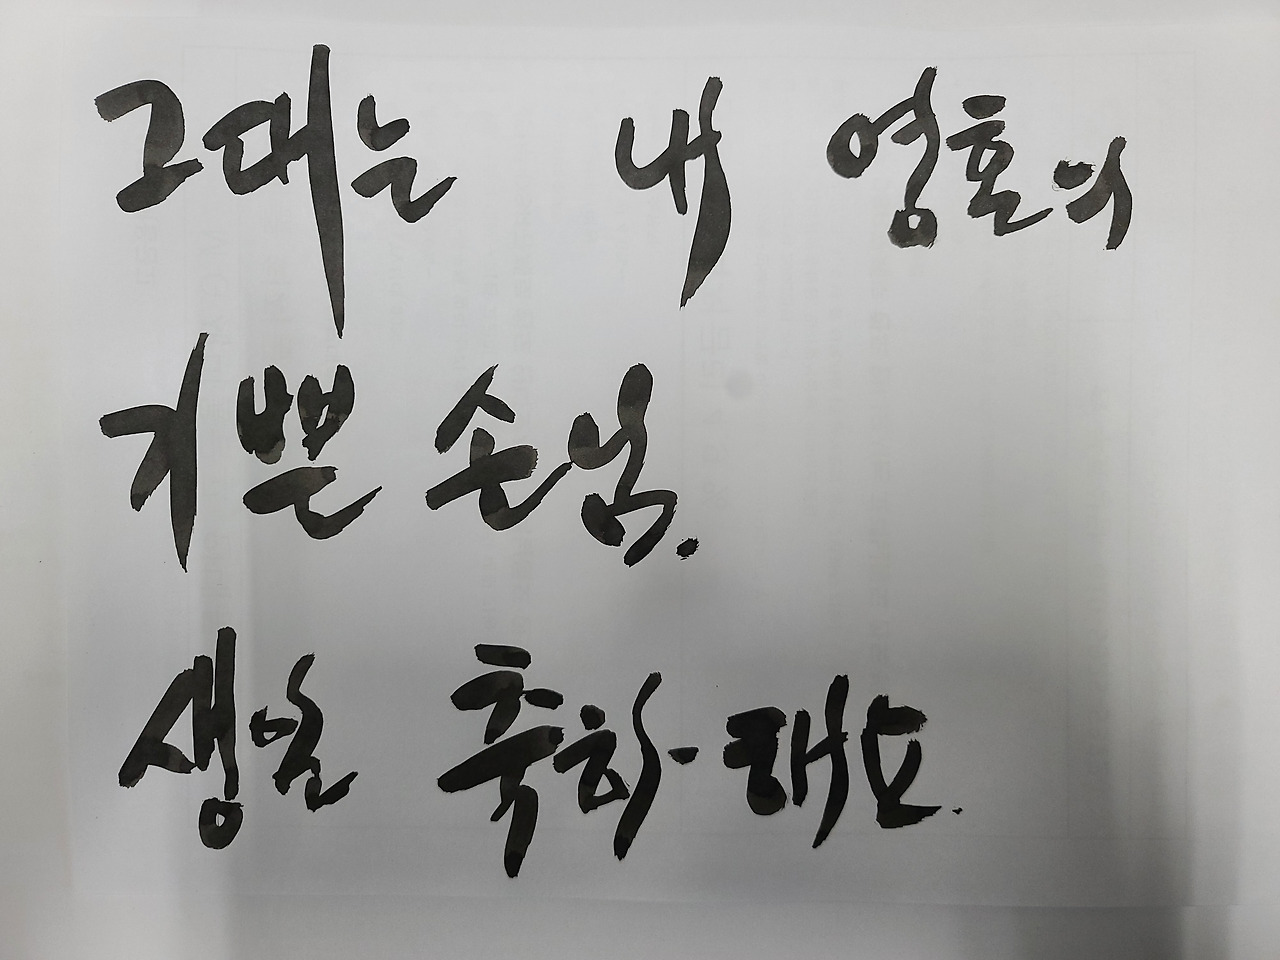 그대는 내 영혼의
기쁜 손님.
생일 축하해요.